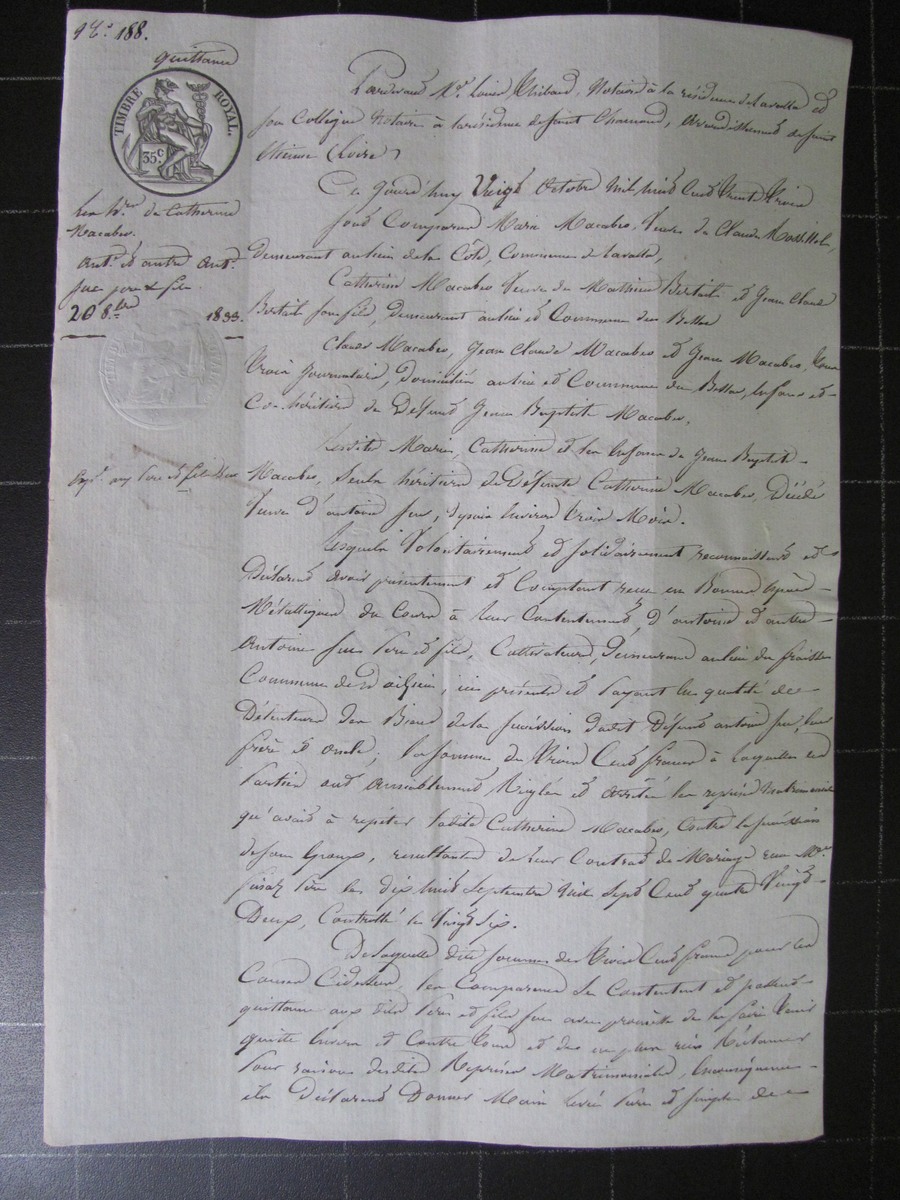 188.
quittance
TIMBRE ROYAL.
35 c
Les h.rs de Catherine
Macabeo.
Ant.e et autre Ant.e
feu pere & fils
20 8.bre 1833.
Pardevant M.e Louis Thibaud, Notaire à la résidence de Lavalla et
son Collègue Notaire à la résidence de Saint Chamond, arrondissement de Saint
Etienne (Loire)
Ce jourd'huy Vingt Octobre Mil huit Cent Trente Trois
Sont Comparus Marie Macabeo, Veuve de Claude
demeurant au lieu de la Côte, Commune de Lavalla,
Catherine Macabeo Veuve de Mathieu et Jean Claude
son fils, demeurant au lieu et Commune du Bessat
Claude Macabeo, Jean Claude Macabeo et Jean Macabeo, tous
Trois journaliers, Domiciliés au lieu et Commune du Bessat, Enfans et
Co-héritiers de Défunt Jean Baptiste Macabeo.
Lesdits Marie, Catherine et les Enfans de Jean Baptiste
Macabeo, Seuls héritiers de Défunte Catherine Macabeo, Décédée
Veuve d'antoine feu, depuis Environ Trois Mois.
Lesquels Volontairement et solidairement reconnaissent et
Déclarent avoir présentement et Comptant reçu en Bonnes Espèces
Métalliques du Cours à leur Contentement, d'antoine et autre
Antoine feu Père et fils, Cultivateurs, Demeurant au lieu du
Commune de ici présents et payant En qualité de
Détenteurs des Biens de la succession dudit Défunt antoine feu, leur
frère et oncle, la somme de Trois Cent francs à laquelle les
Parties ont amiablement Réglés et arrêté les reprises Matrimoniales
qu'avait à répéter ladite Catherine Macabeo, Contre la succession
de son époux, résultantes de leur Contrat de Mariage reçu M.e
Père le dix huit Septembre Mil sept Cent quatre Vingt
Deux, Contrôlé le Vingt Six.
De laquelle dite somme de Trois Cent francs pour les
Causes Cidessus, les Comparants Se Contentent et passent
quittance aux dits Père et fils feu avec promesse de les faire Tenir
quitte Envers et Contre Tous et de ne plus rien Réclamer
Pour raison desdites Reprises Matrimoniales, En conséquence
ils Déclarent Donner Main levée Pure et simple de